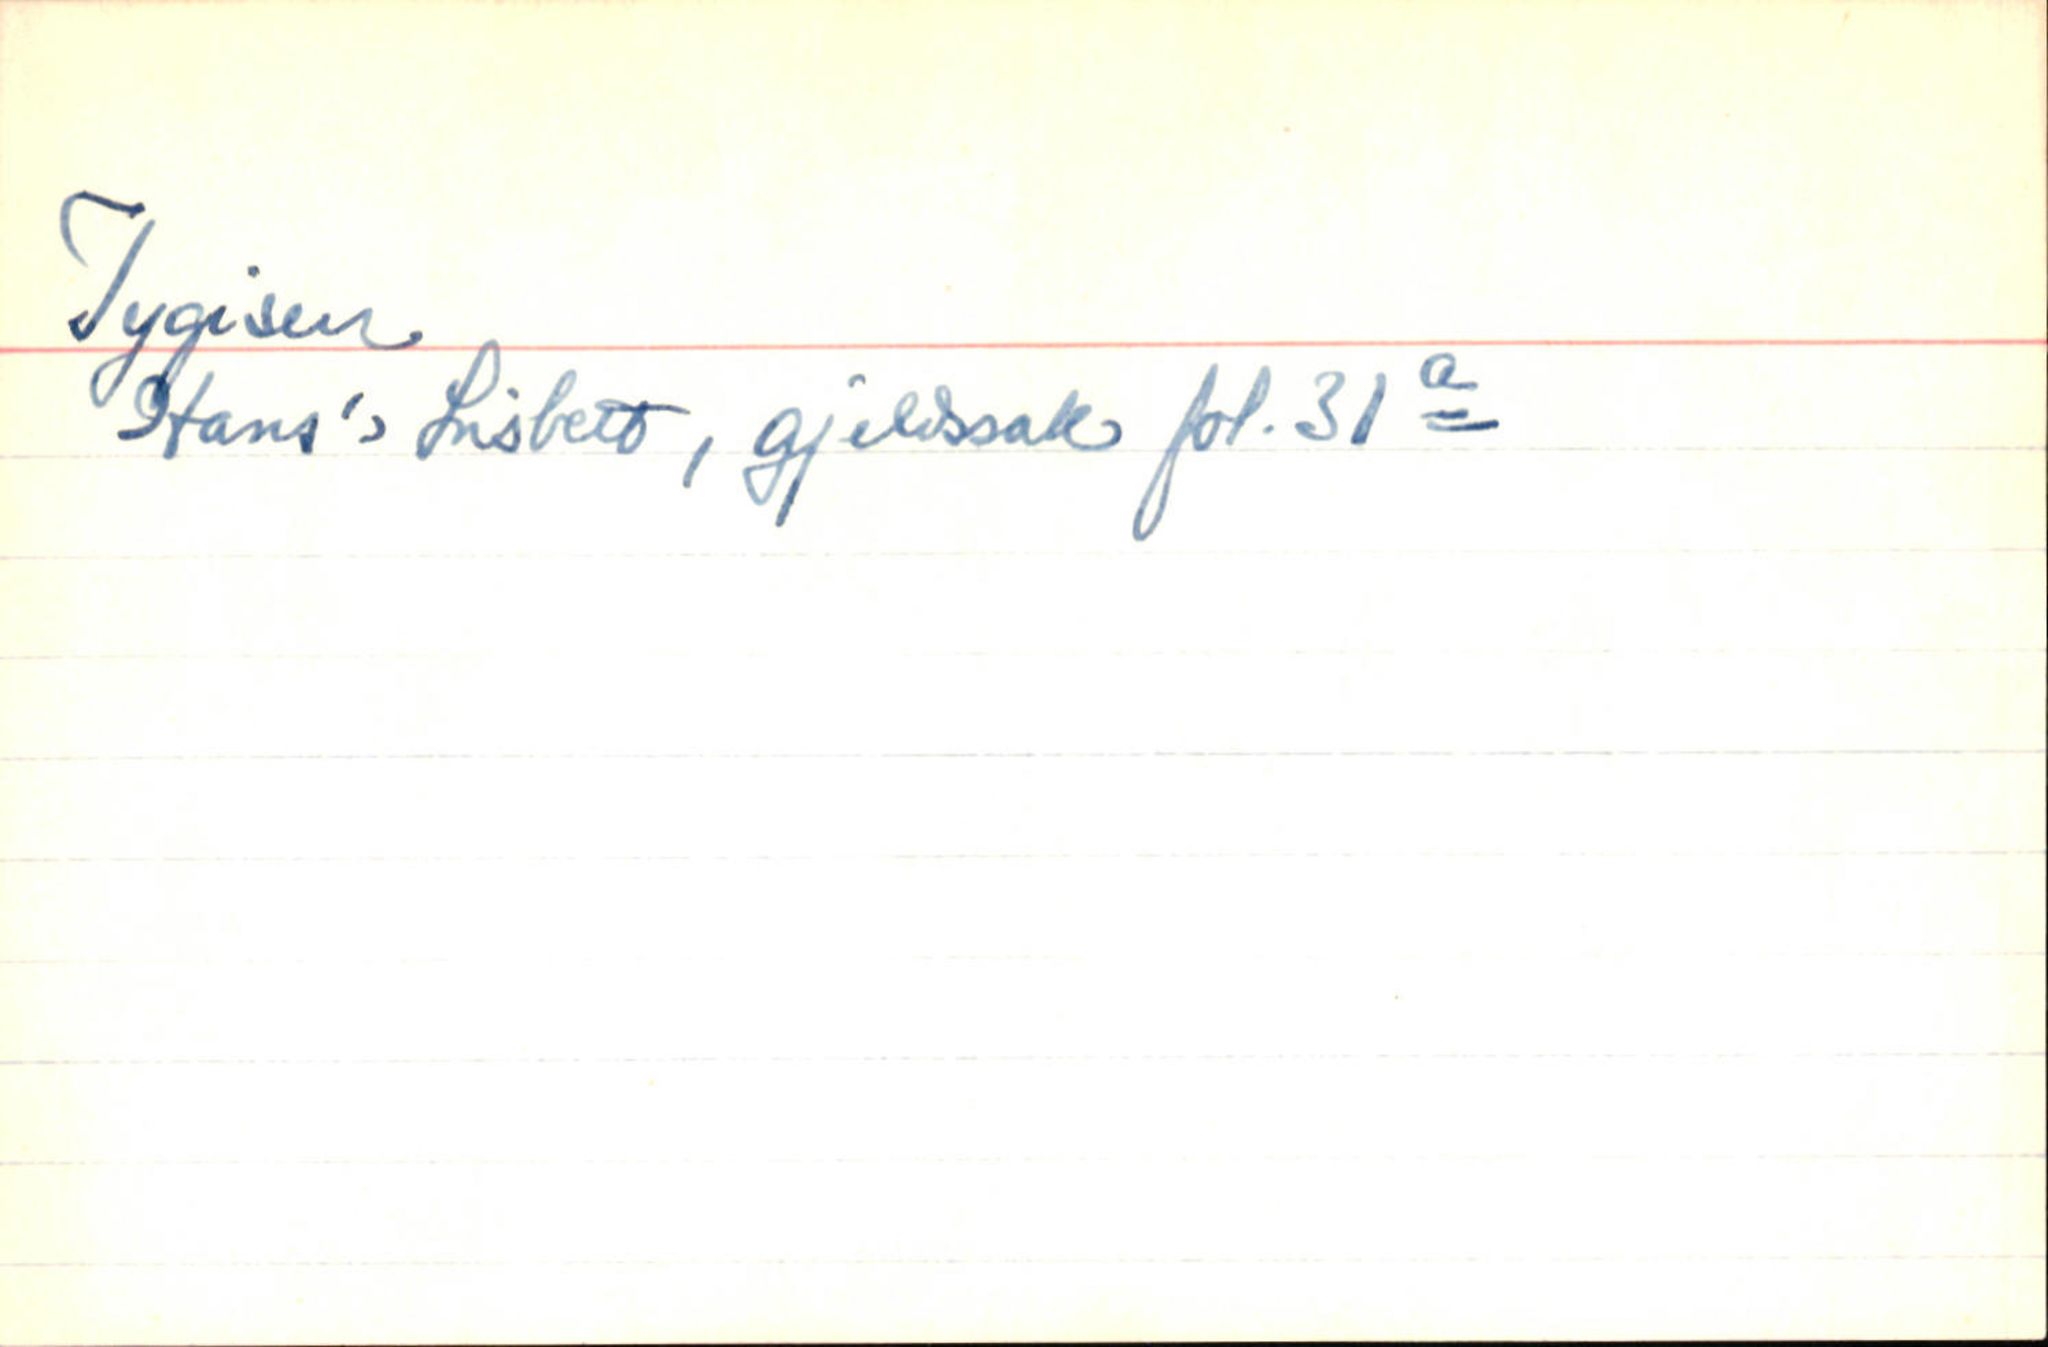 Tygisen
Hans's Lisbett, gjeldssak fol. 31 a